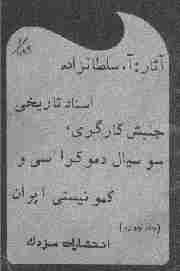 آثار: آ. سلطانزاده
اسناد تاریخی
جنبش کارگری،
سوسیال دموکراسی و
کمونیستی ایران
انتشارات مزدک